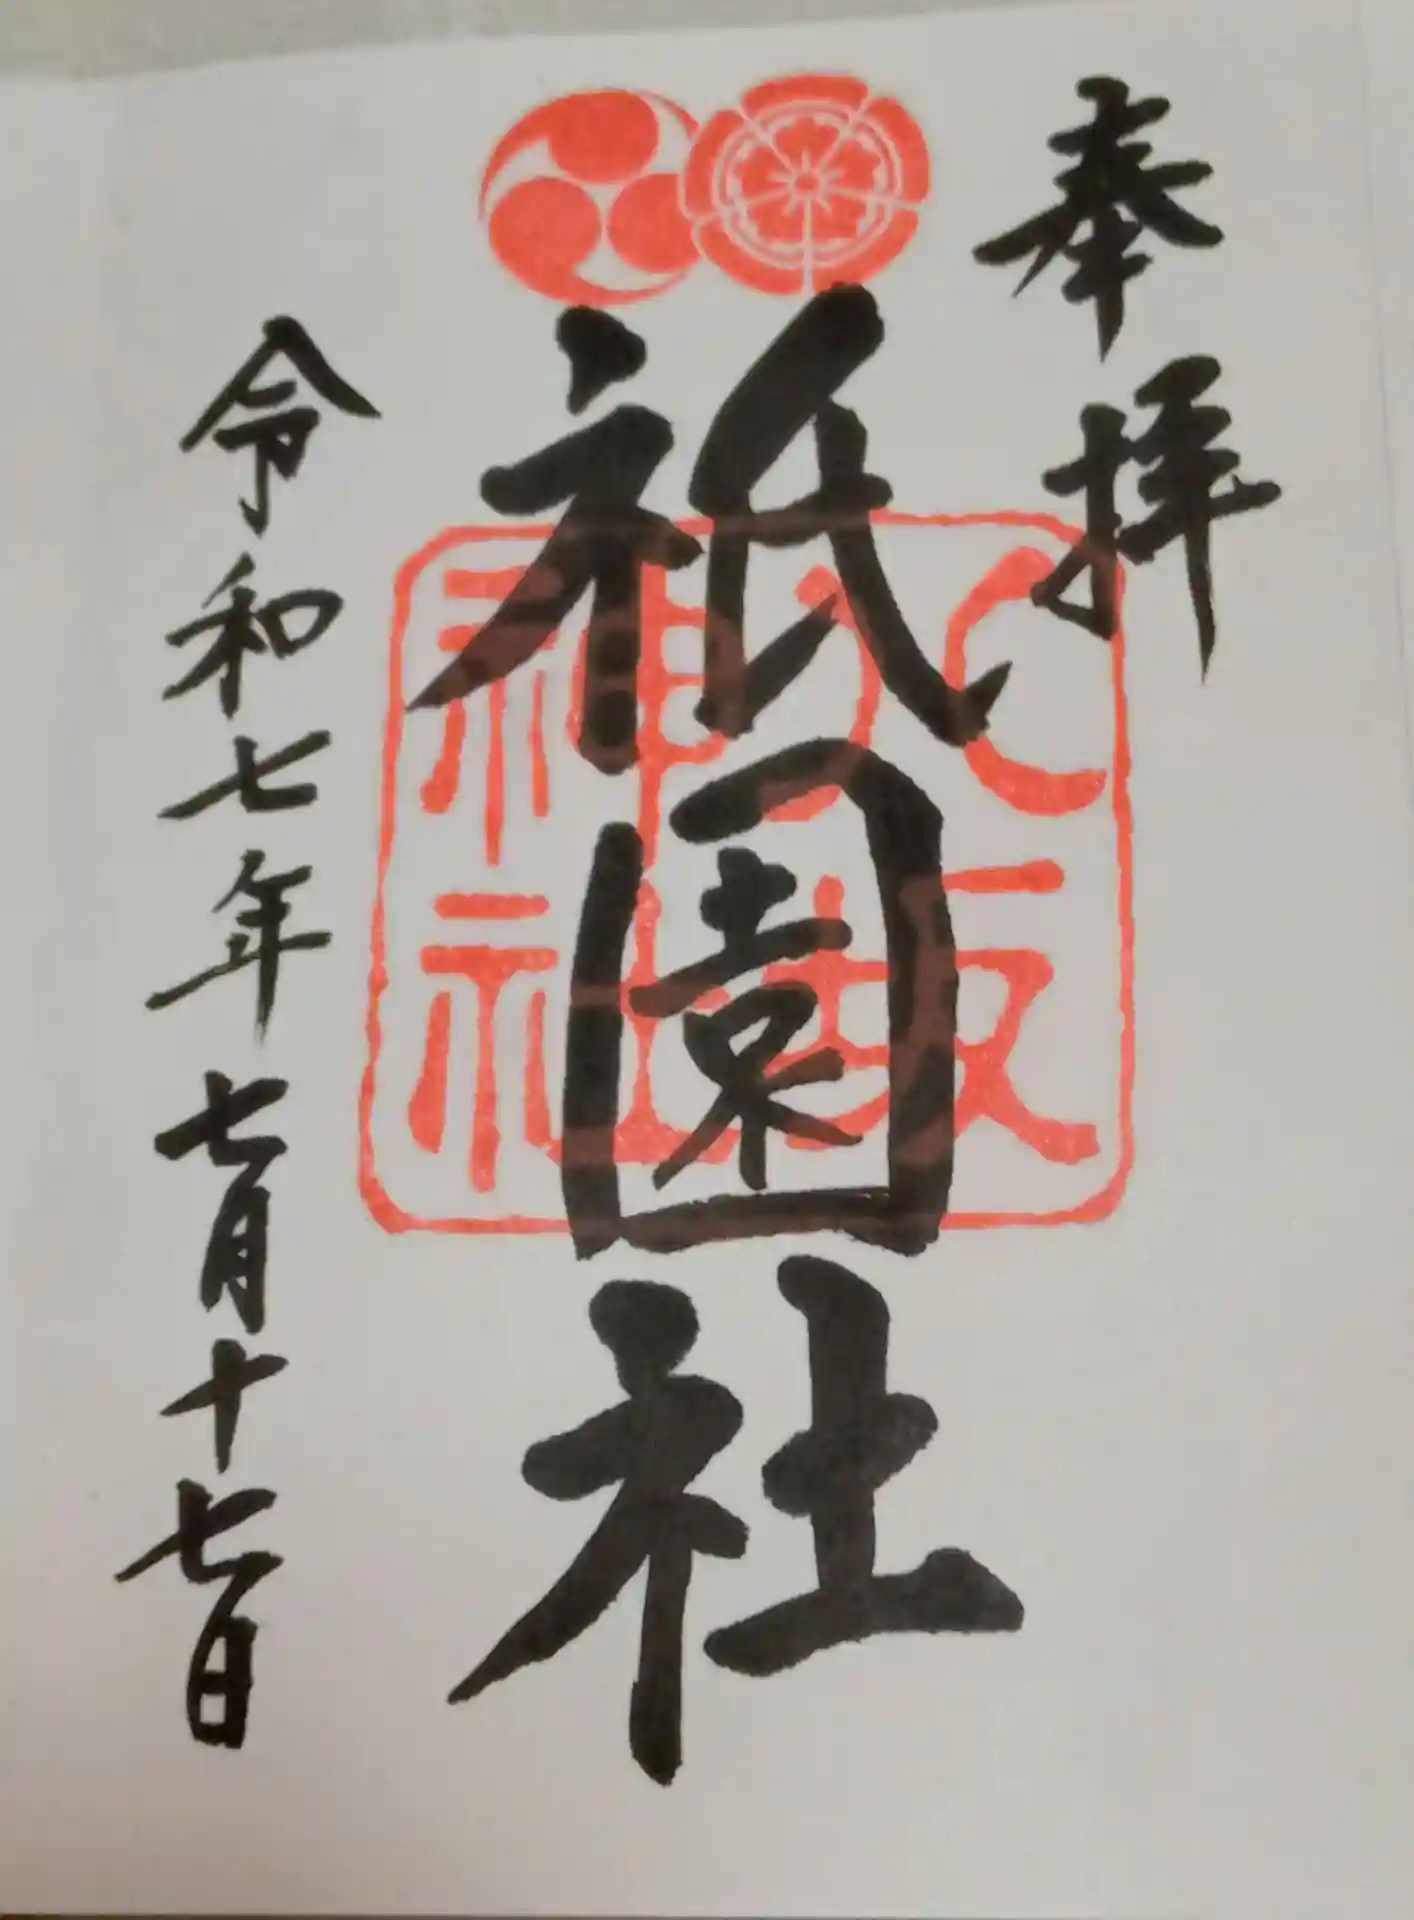 奉拝
祇園社
八坂神社
令和七年七月十七日